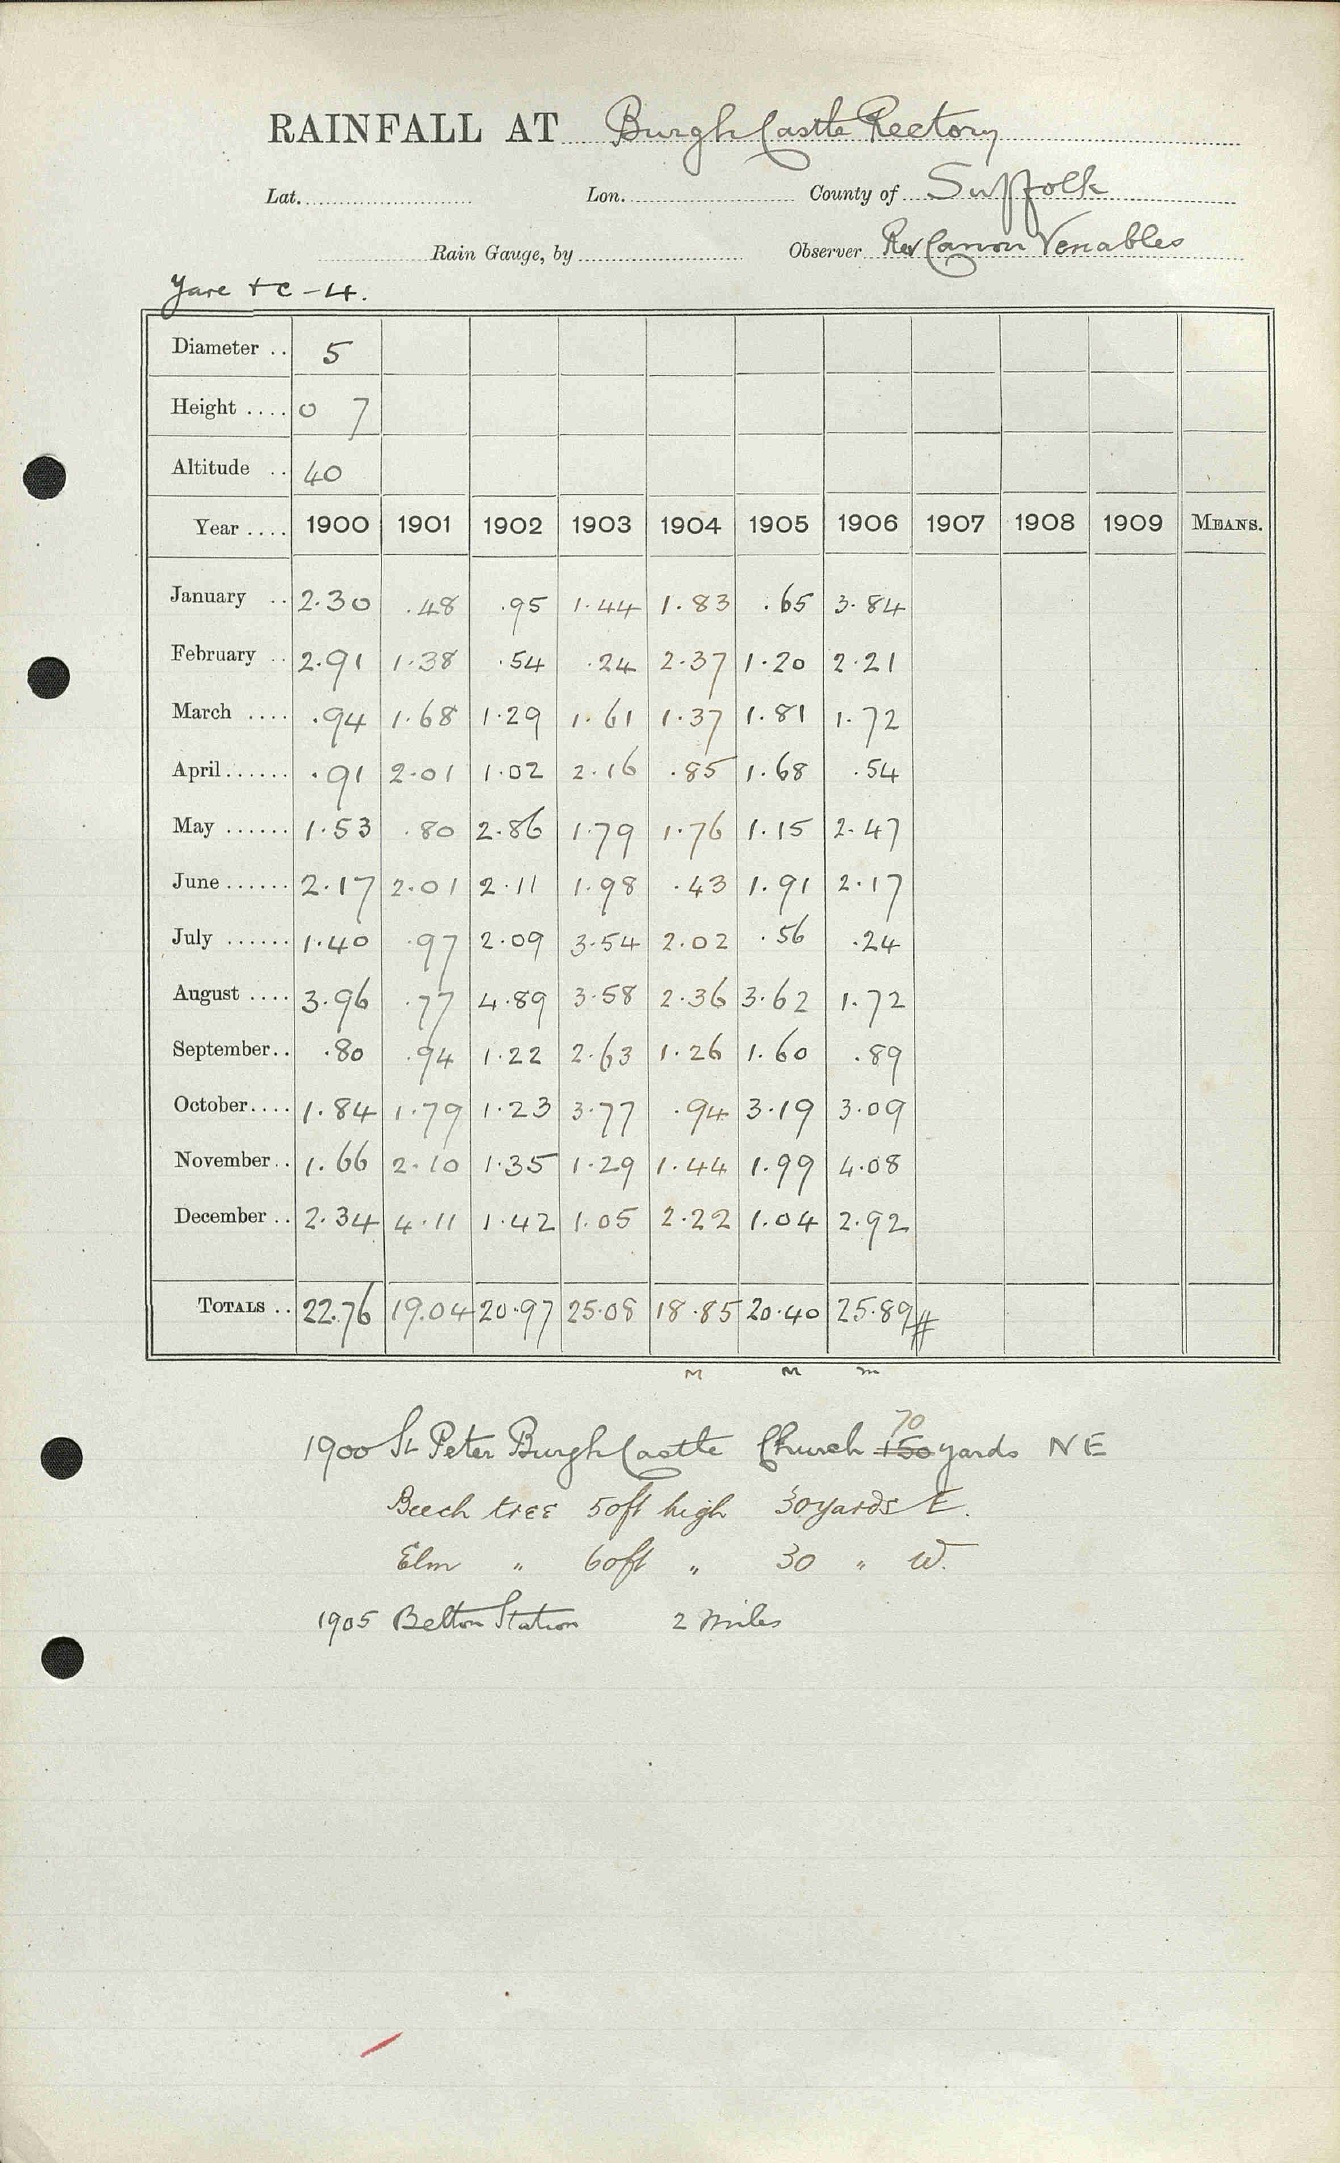 RAINFALL AT Burgh Castle Rectory
Lat. Lon. County of Suffolk
Rain Gauge, by Observer Rev Canon Venables
Yare &c - 4.
Diameter .. 5
Height .... 0 7
Altitude .. 40
Year .... 1900 1901 1902 1903 1904 1905 1906 1907 1908 1909 MEANS.
January .. 2.30 .48 .95 1.44 1.83 .65 3.84
February .. 2.91 1.38 .54 .24 2.37 1.20 2.21
March .... .94 1.68 1.29 1.61 1.37 1.81 1.72
April...... .91 2.01 1.02 2.16 .85 1.68 .54
May ...... 1.53 .80 2.86 1.79 1.76 1.15 2.47
June...... 2.17 2.01 2.11 1.98 .43 1.91 2.17
July ...... 1.40 .97 2.09 3.54 2.02 .56 .24
August .... 3.96 .77 4.89 3.58 2.36 3.62 1.72
September.. .80 .94 1.22 2.63 1.26 1.60 .89
October.... 1.84 1.79 1.23 3.77 .94 3.19 3.09
November.. 1.66 2.10 1.35 1.29 1.44 1.99 4.08
December .. 2.34 4.11 1.42 1.05 2.22 1.04 2.92
TOTALS .. 22.76 19.04 20.97 25.08 18.85 20.40 25.89#
M M m
70
1900 St Peter Burgh Castle Church 150 yards NE
Beech tree 50ft high 30 yards E.
Elm " 60ft " 30 " W.
1905 Belton Station 2 miles